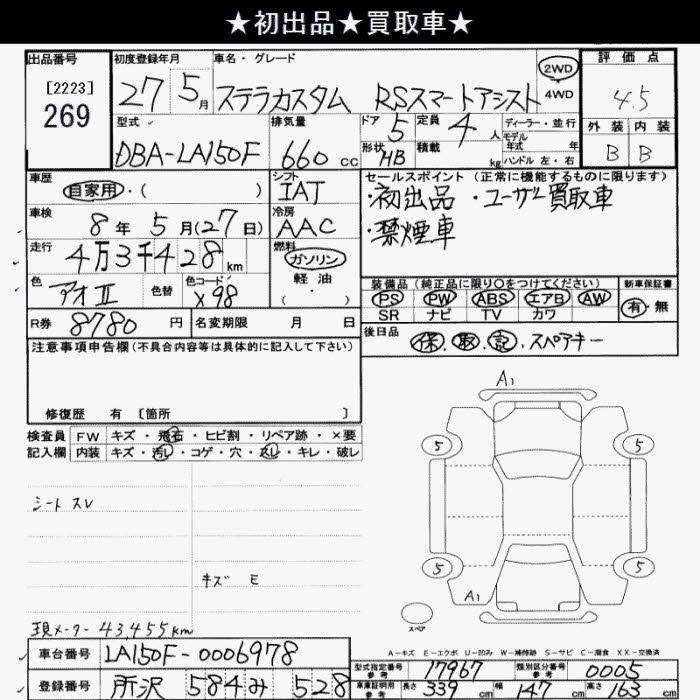 ★初出品★買取車★
出品番号
[2223]
269
初度登録年月
27 5月
車名・グレード
ステラカスタム RSスマートアシスト
2WD
4WD
評価点
4.5
外装 内装
B B
型式
DBA-LA150F
排気量
660 cc
ドア
5
定員
4人
形状
HB
積載
kg
ディーラー・並行
モデル
年式 年
ハンドル 左・右
車歴
自家用・( )
シフト
IAT
車検
8年 5月(27日)
冷房
AAC
走行
4万3千428km
燃料
ガソリン
軽油
( ・ )
色
アオII
色替
色コード
X98
R券
8780円
名変期限 月 日
セールスポイント (正常に機能するものに限ります)
・初出品 ・ユーザー買取車
・禁煙車
装備品(純正品に限り〇をつけてください)
PS PW ABS エアB AW
SR ナビ TV カワ
新車保証書
有・無
後日品
保・取・記・スペアキー
注意事項申告欄(不具合内容等は具体的に記入して下さい)
修復歴 有 〔箇所 〕
検査員
記入欄
FW キズ・飛石・ヒビ割・リペア跡・×要
内装 キズ・汚レ・コゲ・穴・スレ・キレ・破レ
シート スレ
キズ E
現メーター 43,455km
A1
5
5
5
5
A1
スペア
A-キズ E-エクボ U-凹み W-補修跡 S-サビ C-腐食 XX-交換済
車台番号
LA150F-0006978
登録番号
所沢 584 み 528
型式指定番号
参考
17967
類別区分番号
参考
0005
車庫証明用
参考
長さ 339cm 幅 147cm 高さ 163cm